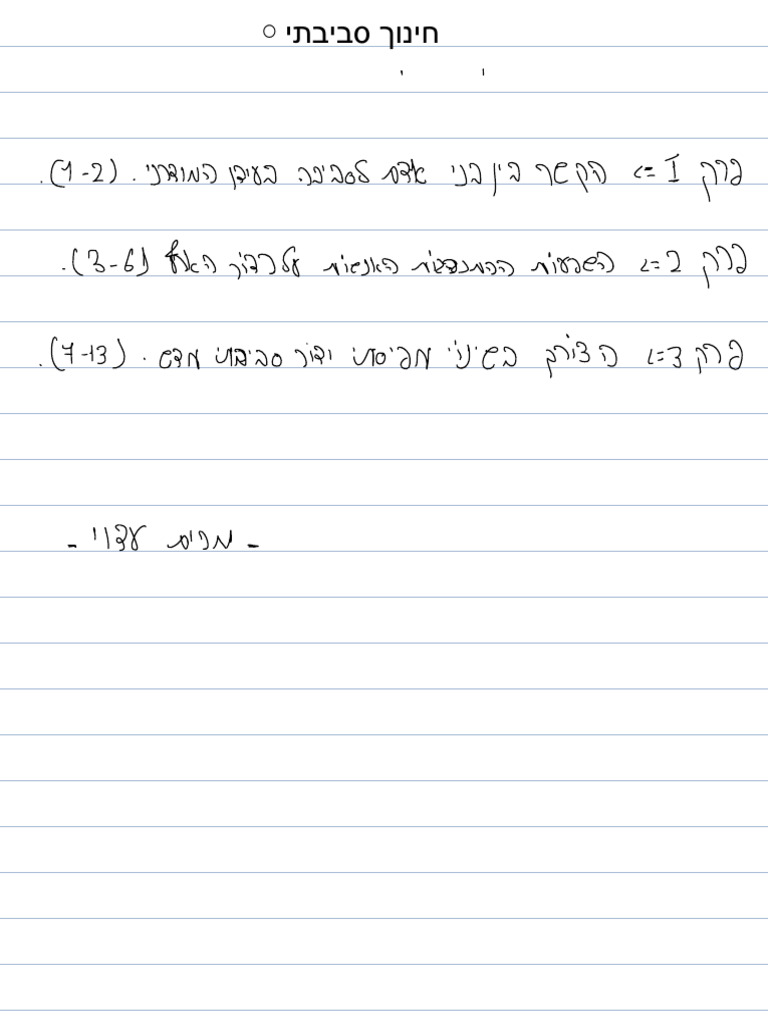 חינוך סביבתי ○
פרק I <= הקשר בין בני אדם לסביבה בעידן המודרני. (1-2).
פרק 2 <= השפעות ההתנהגות האנושית על כדור הארץ (3-6).
פרק 3 <= הצורך בשינוי תפיסתי ודור סביבתי חדש. (7-13).